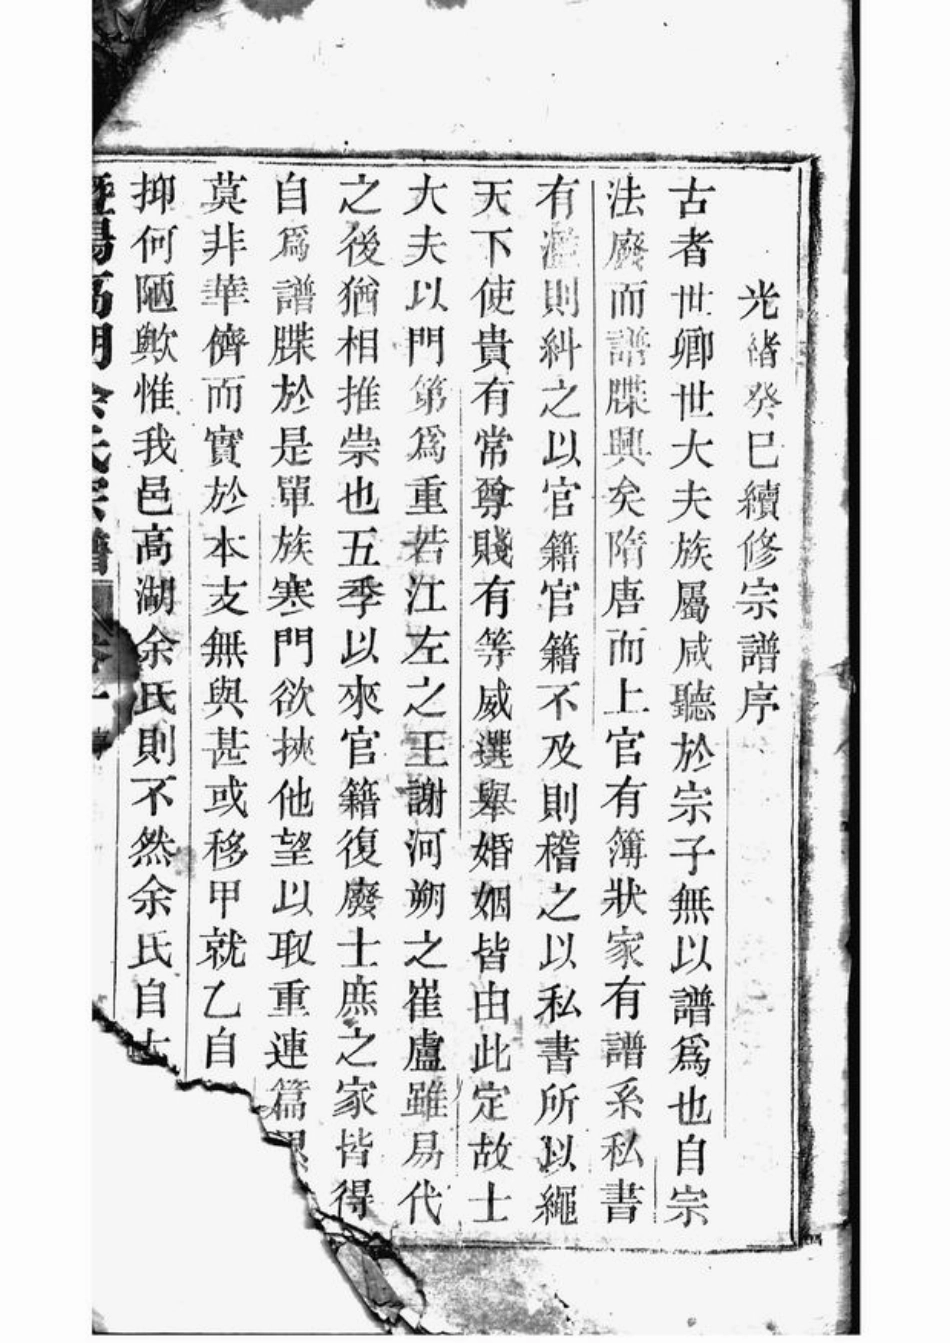 光緒癸巳續修宗譜序
古者世卿世大夫族屬咸聽於宗子無以譜爲也自宗
法廢而譜牒興矣隋唐而上官有簿狀家有譜系私書
有濫則糾之以官籍官籍不及則稽之以私書所以繩
天下使貴有常尊賤有等威選舉婚姻皆由此定故士
大夫以門第爲重若江左之王謝河朔之崔盧雖易代
之後猶相推崇也五季以來官籍復廢士庶之家皆得
自爲譜牒於是單族寒門欲挾他望以取重連篇累
莫非華儕而實於本支無與甚或移甲就乙自
抑何陋歟惟我邑高湖余氏則不然余氏自
暨陽高湖余氏宗譜 卷一